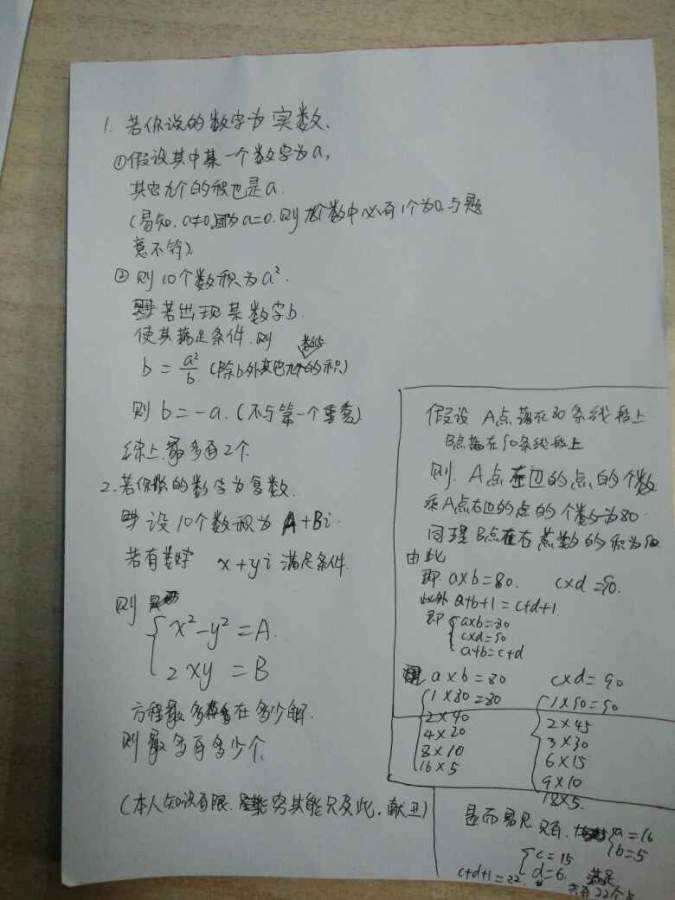 1. 若你说的数字为实数、
①假设其中某一个数字为a,
其它九个的积也是a.
(易知.a≠0,因为a=0.则 九个数中必有1个为0.与题
意不符)
② 则10个数积为a².
若出现某数字b.
使其满足条件.则
b = a²/b (除b外其它九个数的积)
则b=-a.(不与第一个重复)
综上,最多有2个
2.若你说的数字为复数.
设10个数积为 A+Bi.
若有数字 x+yi 满足条件.
则
{ x²-y²=A.
2xy =B
方程最多存在多少解.
则最多有多少个.
(本人知识有限.穷其能只及此.献丑)
假设 A点落在80条线段上
B点落在90条线段上
则.A点左边的点的个数
乘A点右边的点的个数为80.
同理B点左右点数的积为90
由此
即 a×b=80. c×d=90.
此外 a+b+1=c+d+1.
即 { a×b=80
c×d=90
a+b=c+d
a×b=80 c×d=90
{ 1×80=80 { 1×90=90
2×40 2×45
4×20 3×30
8×10 6×15
16×5 9×10
18×5.
显而易见 只有. { a=16
b=5
{ c=15
d=6. 满足
c+d+1=22.
共有22个点